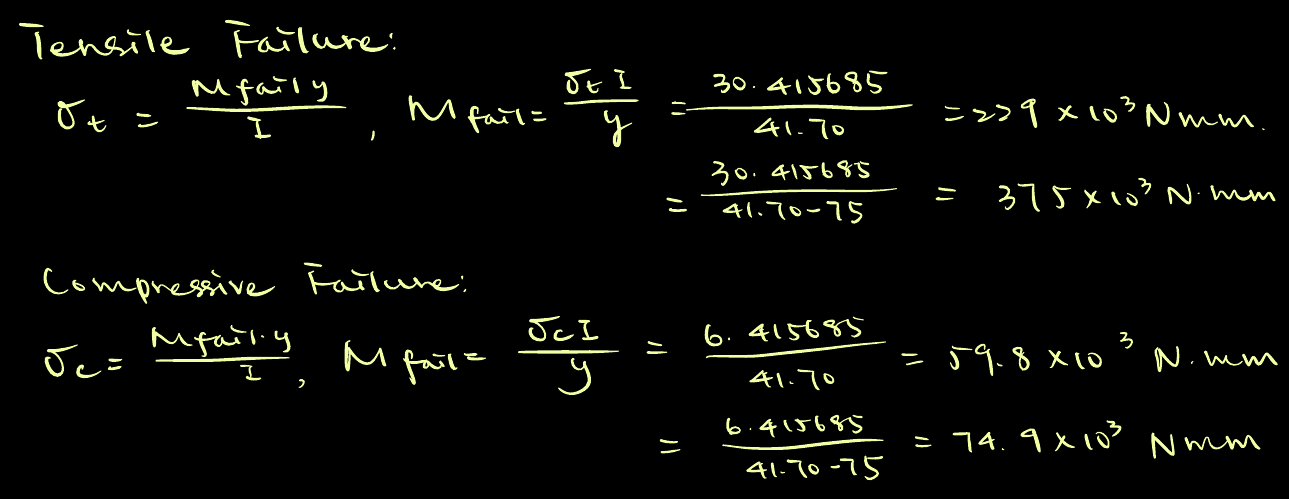 Tensile Failure:
σt = Mfail y / I , Mfail = σt I / y = 30.415685 / 41.70 = 229 × 10³ Nmm.
= 30.415685 / 41.70-75 = 375 × 10³ N·mm
Compressive Failure:
σc = Mfail·y / I , Mfail = σc I / y = 6.415685 / 41.70 = 59.8 × 10³ N·mm
= 6.415685 / 41.70-75 = 74.9 × 10³ Nmm